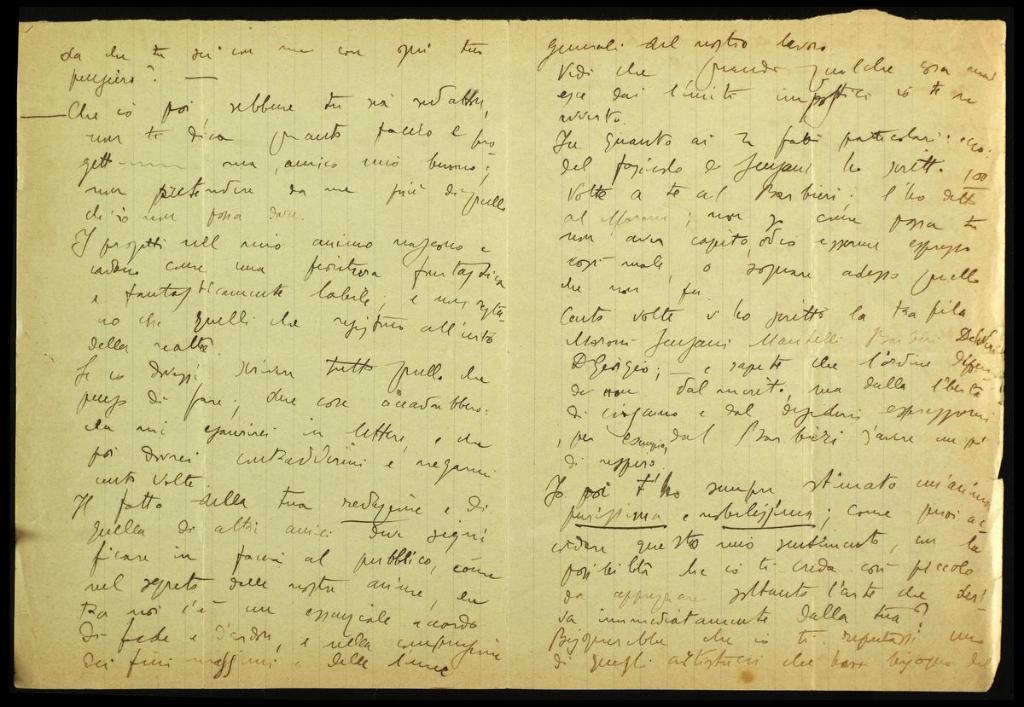 da che tu sei con me con ogni tuo
pensiero? —
— Che io poi sebbene tu sia redattore,
non te dica quanto faccio e pro
getto ma, amico mio buono,
non pretendere da me più di quello
ch'io non possa dare.
I progetti nel mio animo nascono e
cadono come una fioritura fantastica
e fantasticamente labile, e non resta
no che quelli che resistono all'urto
della realtà.
Se io dovessi scrivere tutto quello che
penso di fare, due cose accadrebbero:
che mi esaurirei in lettere, e che
poi dovrei contraddirmi e negarmi
cento volte.
Il fatto della tua redazione e di
quella di altri amici deve signi
ficare in faccia al pubblico, come
nel segreto delle nostre anime, che
tra noi c'è un essenziale accordo
di fede e d'ardore, e nella comprensione
dei fini massimi e delle linee
generali del nostro lavoro
Vedi che quando qualche cosa
esce dai limiti io te ne
avverto.
In quanto ai 2 fatti particolari: ecco:
del fascicolo di ho scritto 100
volte a te al Barbieri, l'ho detto
al Moroni; non so come possa tu
non aver capito, od io essermi espresso
così male, o sognare adesso quello
che non fu.
Cento volte v'ho scritto la trafila
Moroni Mantelli Barbieri
DGiorgio; — e sapete che l'ordine dipen
de non dal merito, ma dalla libertà
di ciascuno e dal desiderio espressomi
, per esempio, dal Barbieri d'avere un po'
di respiro.
Io poi t'ho sempre stimato un'anima
purissima e nobilissima; come puoi ac
cordare questo mio sentimento, con la
possibilità che io ti creda così piccolo
da apprezzare soltanto l'arte che deri
va immediatamente dalla tua?
Bisognerebbe che io ti reputassi uno
di quegli che han bisogno del